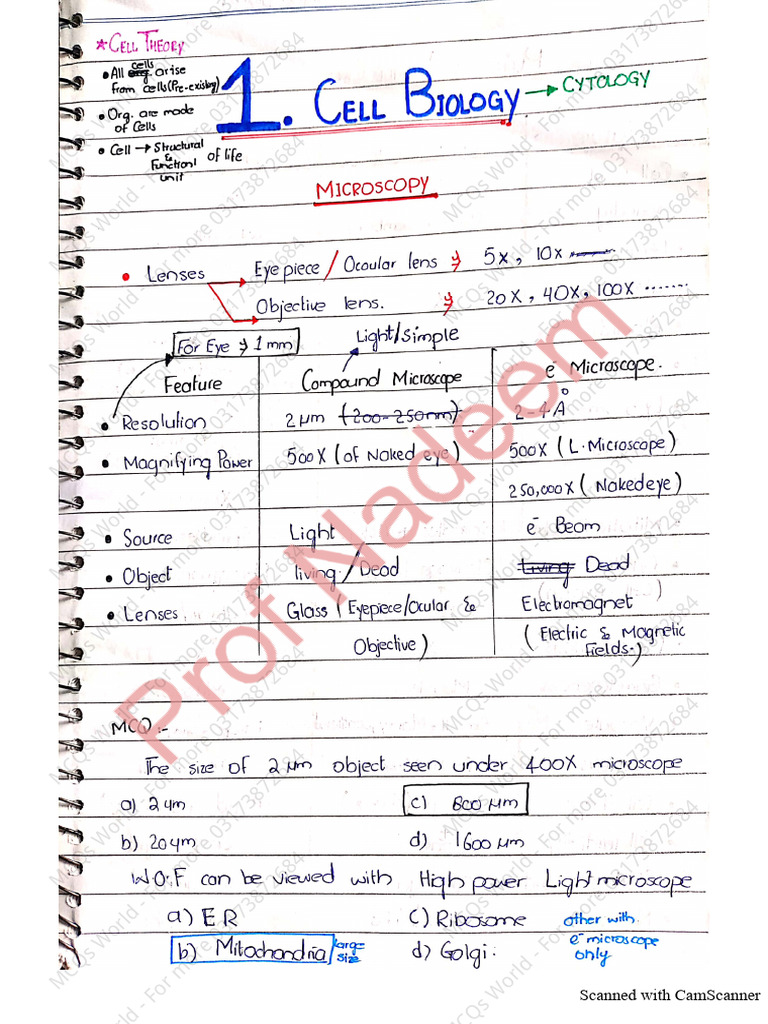 * CELL THEORY
• All cells arise
from cells (Pre-existing)
• Org. are made
of Cells
• Cell → Structural & Functionl unit of life
1. CELL BIOLOGY → CYTOLOGY
MICROSCOPY
• Lenses Eye piece / Ocoular lens 5x, 10x
Objective lens. 20x, 40x, 100x ......
For Eye 1mm
Light/Simple
Feature Compound Microscope e⁻ Microscope.
• Resolution 2 μm (200-250nm) 2-4 Å
• Magnifying Power 500X (of Naked eye) 500X (L. Microscope)
250,000X (Nakedeye)
• Source Light e⁻ Beam
• Object living / Dead Living Dead
• Lenses Glass (Eyepiece/Ocular & Electromagnet
Objective) (Electric & Magnetic
Fields.)
MCQ :-
The size of 2 μm object seen under 400X microscope
a) 2 μm c) 800 μm
b) 20 μm d) 1600 μm
W.O.F can be viewed with High power Light microscope
a) E R c) Ribosome other with
b) Mitochondria large size d) Golgi. e⁻ microscope
only
Prof Nadeem
MCQs World - For more 03173872684
Scanned with CamScanner